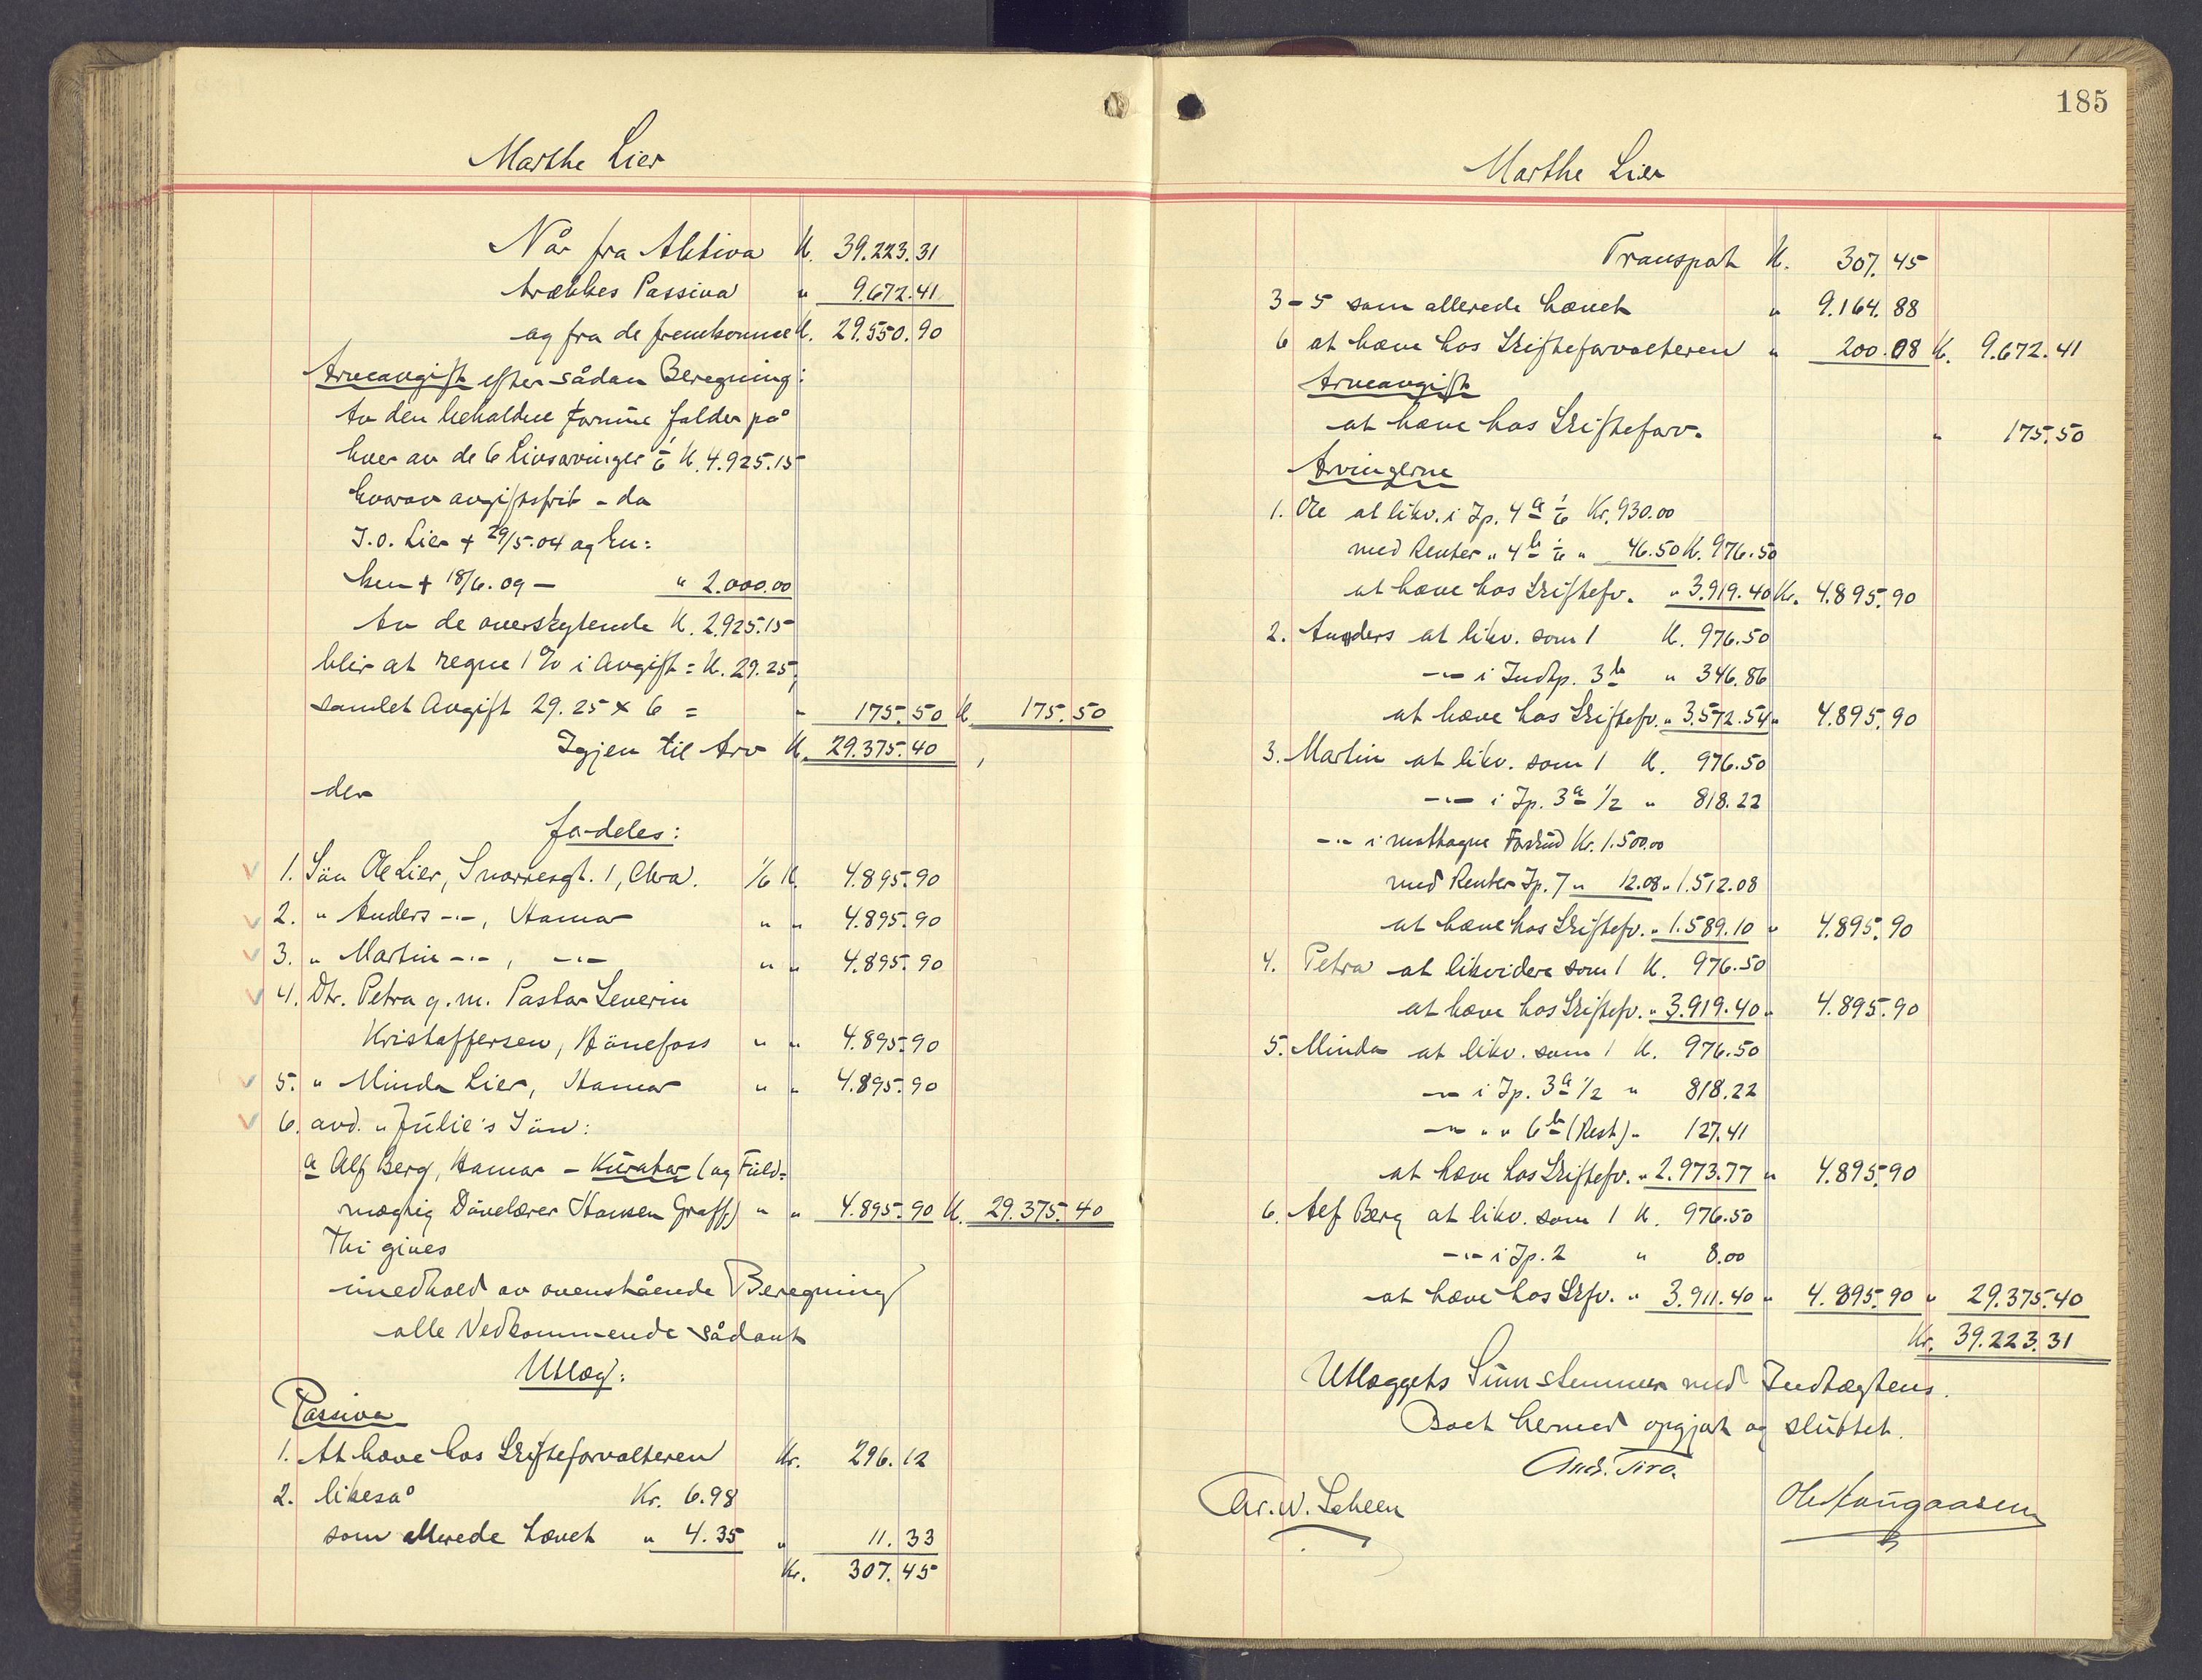 Marthe Lier
Når fra Aktiva K. 39.223.31
trækkes Passiva " 9.672.41
og fra de fremkomne K. 29.550.90
Arveavgift efter sådan Beregning:
Av den beholdne Formue falder på
hver av de 6 Livsarvinger 1/6 K. 4.925.15
hvorav avgiftsfrit - da
J.O. Lier + 29/5.04 og En:
ken + 18/6.09 - " 2.000.00
Av de overskytende K. 2.925.15
blir at regne 1% i Avgift = K. 29.25,
samlet Avgift 29.25 x 6 = " 175.50 K. 175.50
Igjen til Arv K. 29.375.40
der
fa-deles:
1. Sön Ole Lier, Snorresgt. 1, Chra. 1/6 K. 4.895.90
2. " Anders -"-, Hamar " " 4.895.90
3. " Martin -"-, -"- " " 4.895.90
4. Dtr. Petra g.m. Pastor Severin
Kristoffersen, Hönefoss " " 4.895.90
5. " Minda Lier, Hamar " " 4.895.90
6. avd. " Julie's Sön:
a Alf Berg, Hamar - Kurator (og Fuld-
mægtig Dövelærer Hansen Graff) " " 4.895.90 K. 29.375.40
Thi gives
i medhold av ovenstående Beregning
alle Vedkommende sådant
Utlæg:
Passiva
1. At hæve hos Skifteforvalteren Kr. 296.12
2. likeså Kr. 6.98
som allerede hævet " 4.35 " 11.33
Kr. 307.45
185
Marthe Lier
Transport K. 307.45
3-5 som allerede hævet " 9.164.88
6 at hæve hos Skifteforvalteren " 200.08 K. 9.672.41
Arveavgift
at hæve hos Skifteforv. " 175.50
Arvingerne
1. Ole at likv. i Ip. 4a 1/6 Kr. 930.00
med Renter " 4b 1/6 " 46.50 K. 976.50
at hæve hos Skiftefv. " 3.919.40 Kr. 4.895.90
2. Anders at likv. som 1 K. 976.50
-"- i Indtp. 3b " 346.86
at hæve hos Skiftefv. " 3.572.54 " 4.895.90
3. Martin at likv. som 1 K. 976.50
-"- i Ip. 3a 1/2 " 818.22
-"- i mottagne Forskud Kr. 1.500.00
med Renter Ip. 7 " 12.08 " 1.512.08
at hæve hos Skiftefv. " 1.589.10 " 4.895.90
4. Petra at likvidere som 1 K. 976.50
at hæve hos Skiftefv. " 3.919.40 " 4.895.90
5. Minda at likv. som 1 K. 976.50
-"- i Ip. 3a 1/2 " 818.22
-"- " " 6b (Rest) " 127.41
at hæve hos Skiftefv. " 2.973.77 " 4.895.90
6. Alf Berg at likv. som 1 K. 976.50
-"- i Ip. 2 " 8.00
at hæve hos Skfv. " 3.911.40 " 4.895.90 " 29.375.40
Kr. 39.223.31
Utlæggets Sum stemmer med Indtægtens.
Boet hermed opgjort og sluttet.
Chr. W. Scheen